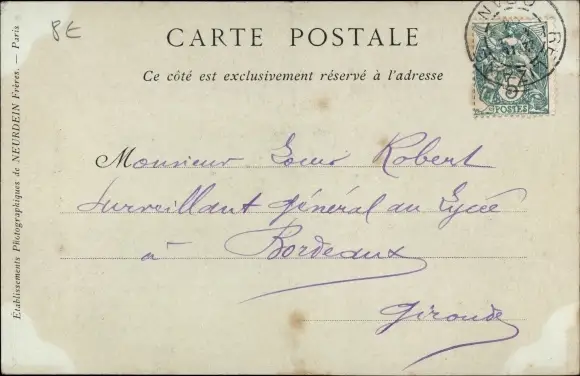 BE
CARTE POSTALE
Ce côté est exclusivement réservé à l'adresse
5
POSTES
Monsieur Louis Robert
Surveillant général au Lycée
à Bordeaux
Gironde
Établissements Photographiques de NEURDEIN Frères. — Paris